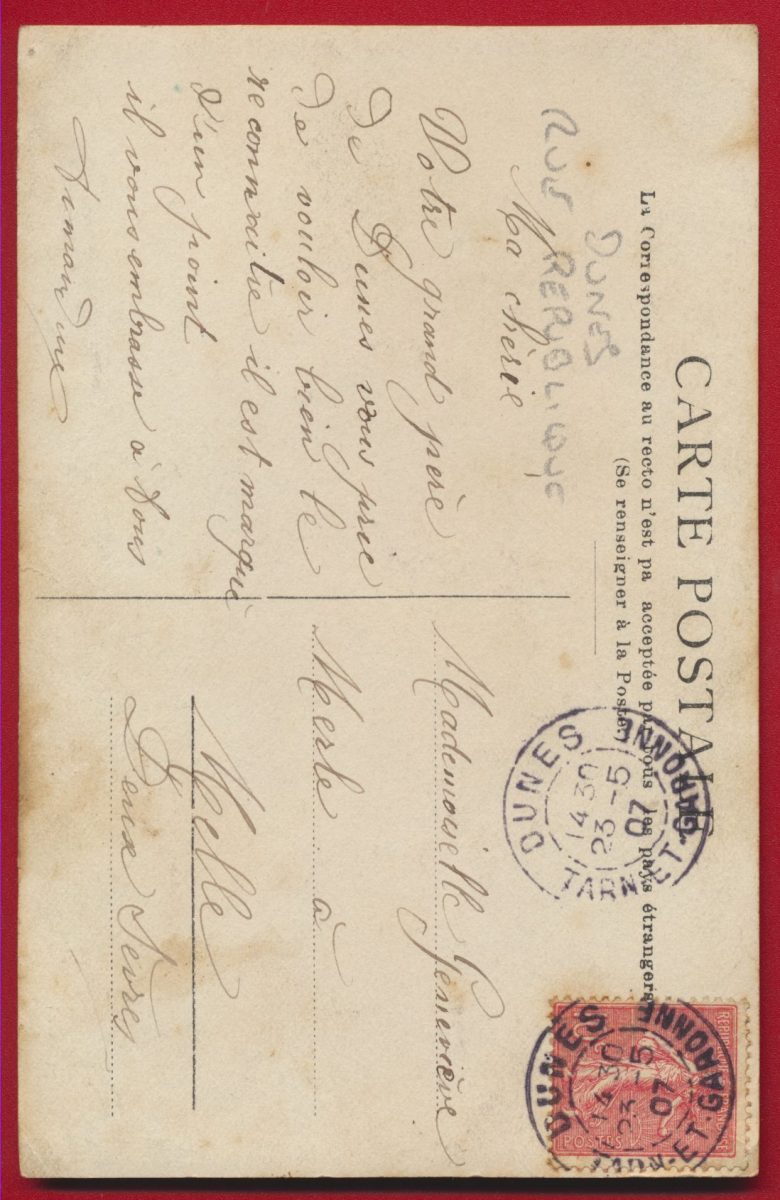 CARTE POSTALE
La Correspondance au recto n'est pa acceptée par tous les pays étrangers
(Se renseigner à la Poste)
DUNES
RUE REPUBLIQUE
Ma chérie
Votre grand père
de Dunes vous prie
de vouloir bien le
reconnaitre il est marqué
d'un point
il vous embrasse à tous
Mademoiselle Geneviève
Merle à
Melle
Deux Sevres
DUNES
14 30
23 - 5
07
TARN-ET-GARONNE
DUNES
14 30
23 - 5
07
TARN-ET-GARONNE
POSTES